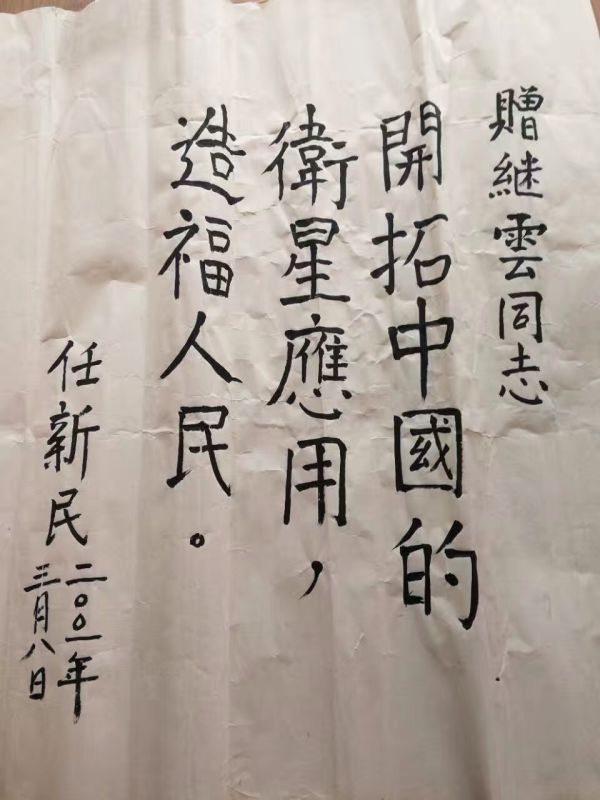 贈継雲同志
開拓中國的
衛星應用，
造福人民。
任新民
二〇〇一年
三月八日